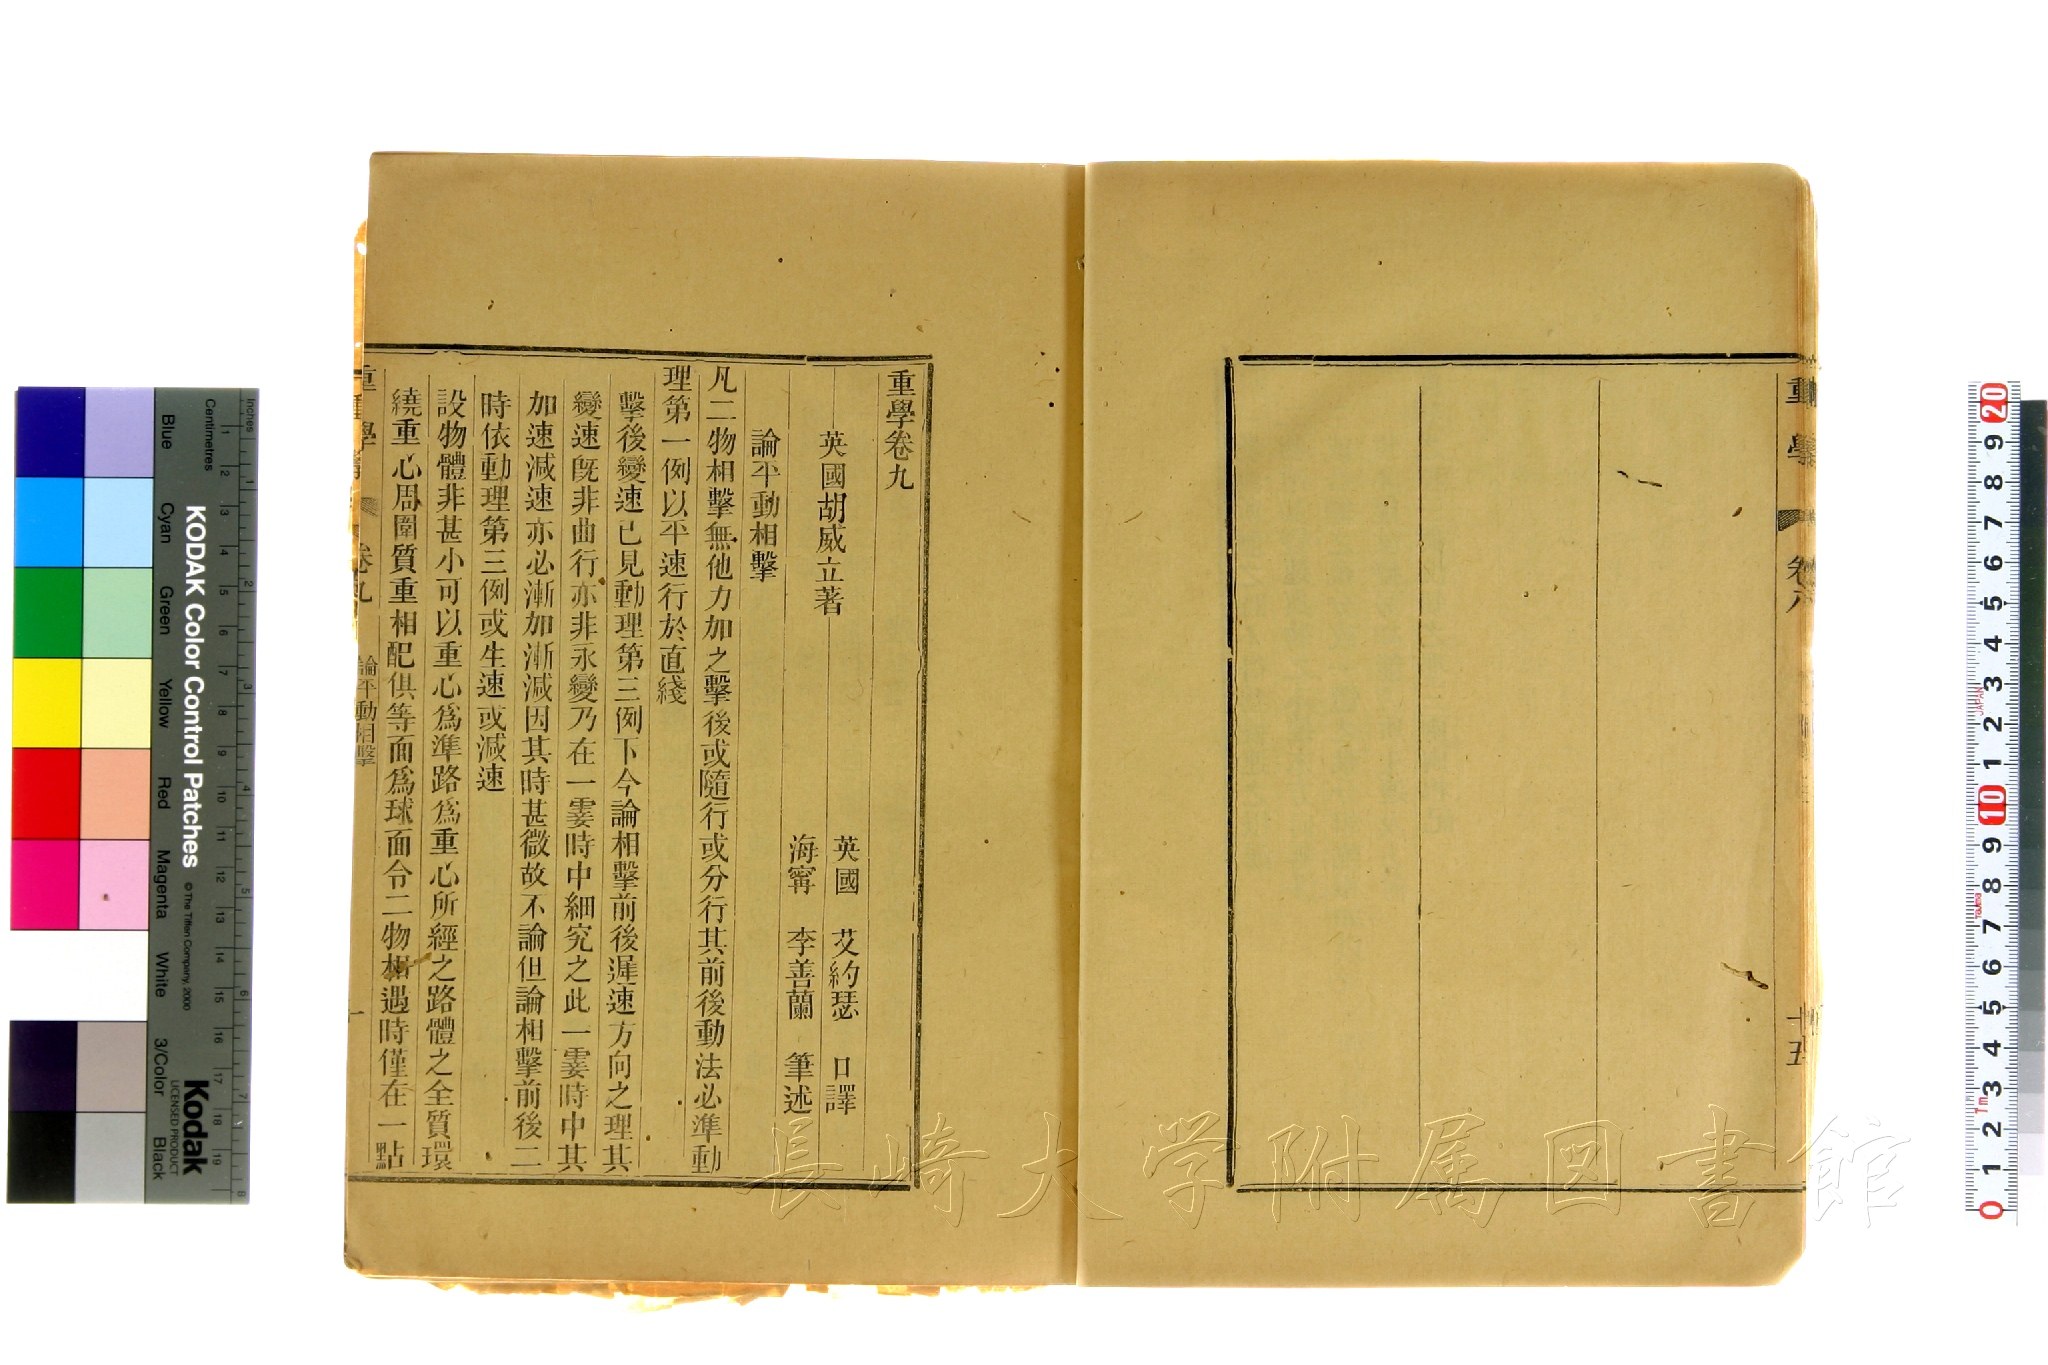 重學
卷八
十五
重學卷九
英國胡威立著
英國 艾約瑟 口譯
海寧 李善蘭 筆述
論平動相擊
凡二物相擊無他力加之擊後或隨行或分行其前後動法必準動
理第一例以平速行於直綫
擊後變速已見動理第三例下今論相擊前後遲速方向之理其
變速旣非曲行亦非永變乃在一霎時中細究之此一霎時中其
加速減速亦必漸加漸減因其時甚微故不論但論相擊前後二
時依動理第三例或生速或減速
設物體非甚小可以重心爲準路爲重心所經之路體之全質環
繞重心周圍質重相配俱等面爲球面令二物相遇時僅在一點
重學
卷九
論平動相擊
一
長崎大学附属図書館
KODAK Color Control Patches
© The Tiffen Company, 2000
Kodak
LICENSED PRODUCT
Inches
Centimetres
Blue
Cyan
Green
Yellow
Red
Magenta
White
3/Color
Black
1 2 3 4 5 6 7 8 9 10 11 12 13 14 15 16 17 18 19
1 2 3 4 5 6 7 8
20 9 8 7 6 5 4 3 2 1 10 9 8 7 6 5 4 3 2 1 0
JAPAN
Tajima
7m